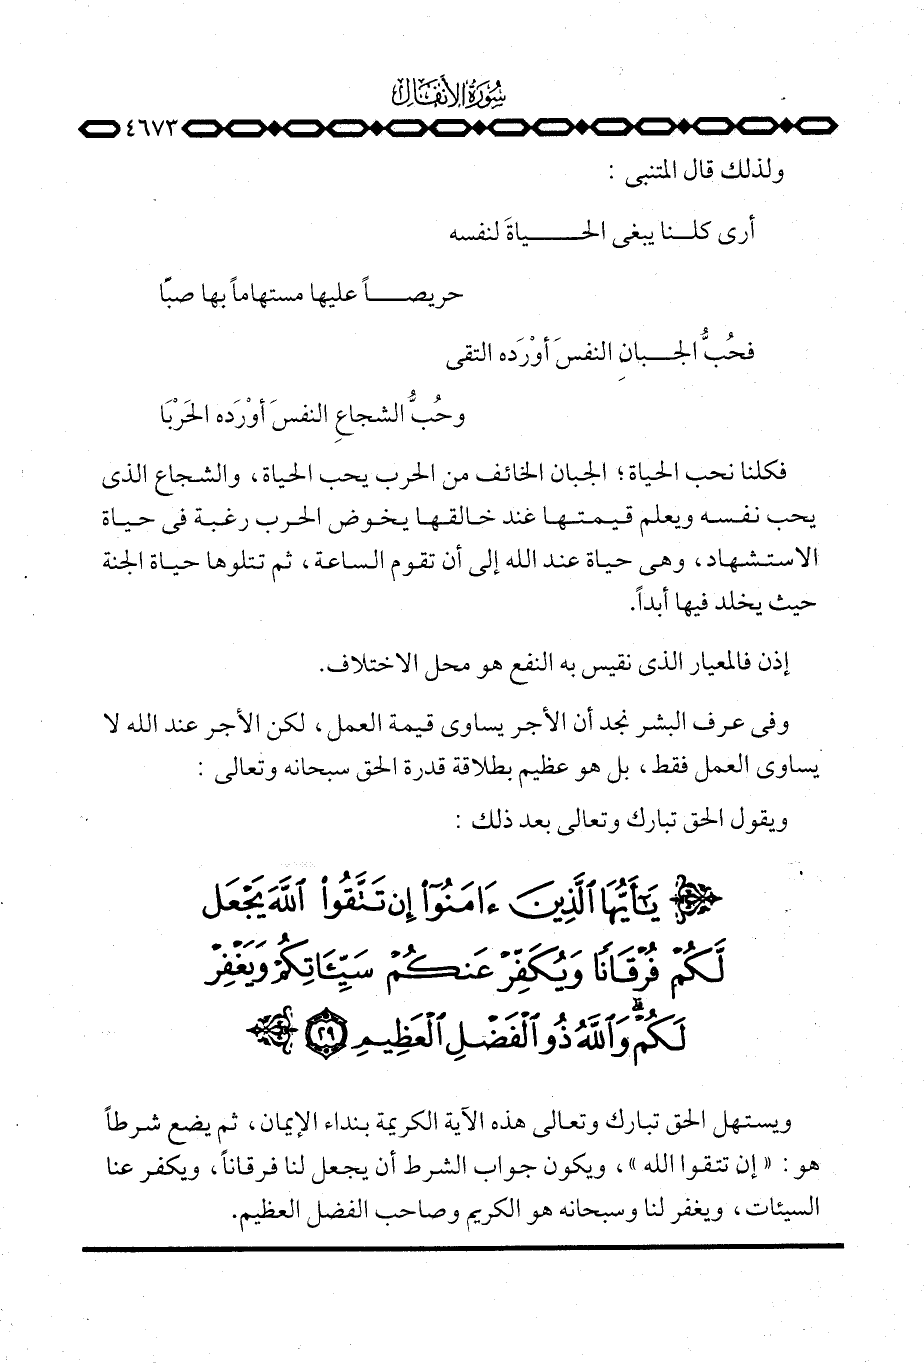 سُورَةُ الأَنْفَالِ
٤٦٧٣
ولذلك قال المتنبى :
أرى كلـنا يبغى الحـــــياةَ لنفسه
حريصـــاً عليها مستهاماً بها صبّا
فحُبُّ الجـــبانِ النفسَ أوْرَده التقى
وحُبُّ الشجاعِ النفسَ أوْرَده الحَرْبَا
فكلنا نحب الحياة؛ الجبان الخائف من الحرب يحب الحياة، والشجاع الذى
يحب نفسه ويعلم قيمتها عند خالقها يخوض الحرب رغبة فى حياة
الاستشهاد، وهى حياة عند الله إلى أن تقوم الساعة، ثم تتلوها حياة الجنة
حيث يخلد فيها أبداً.
إذن فالمعيار الذى نقيس به النفع هو محل الاختلاف.
وفى عرف البشر نجد أن الأجر يساوى قيمة العمل، لكن الأجر عند الله لا
يساوى العمل فقط، بل هو عظيم بطلاقة قدرة الحق سبحانه وتعالى :
ويقول الحق تبارك وتعالى بعد ذلك :
يَٰٓأَيُّهَا ٱلَّذِينَ ءَامَنُوٓا۟ إِن تَتَّقُوا۟ ٱللَّهَ يَجْعَل
لَّكُمْ فُرْقَانًا وَيُكَفِّرْ عَنكُمْ سَيِّـَٔاتِكُمْ وَيَغْفِرْ
لَكُمْ ۗ وَٱللَّهُ ذُو ٱلْفَضْلِ ٱلْعَظِيمِ ٢٩
ويستهل الحق تبارك وتعالى هذه الآية الكريمة بنداء الإيمان، ثم يضع شرطاً
هو : « إن تتقوا الله »، ويكون جواب الشرط أن يجعل لنا فرقاناً، ويكفر عنا
السيئات، ويغفر لنا وسبحانه هو الكريم وصاحب الفضل العظيم.